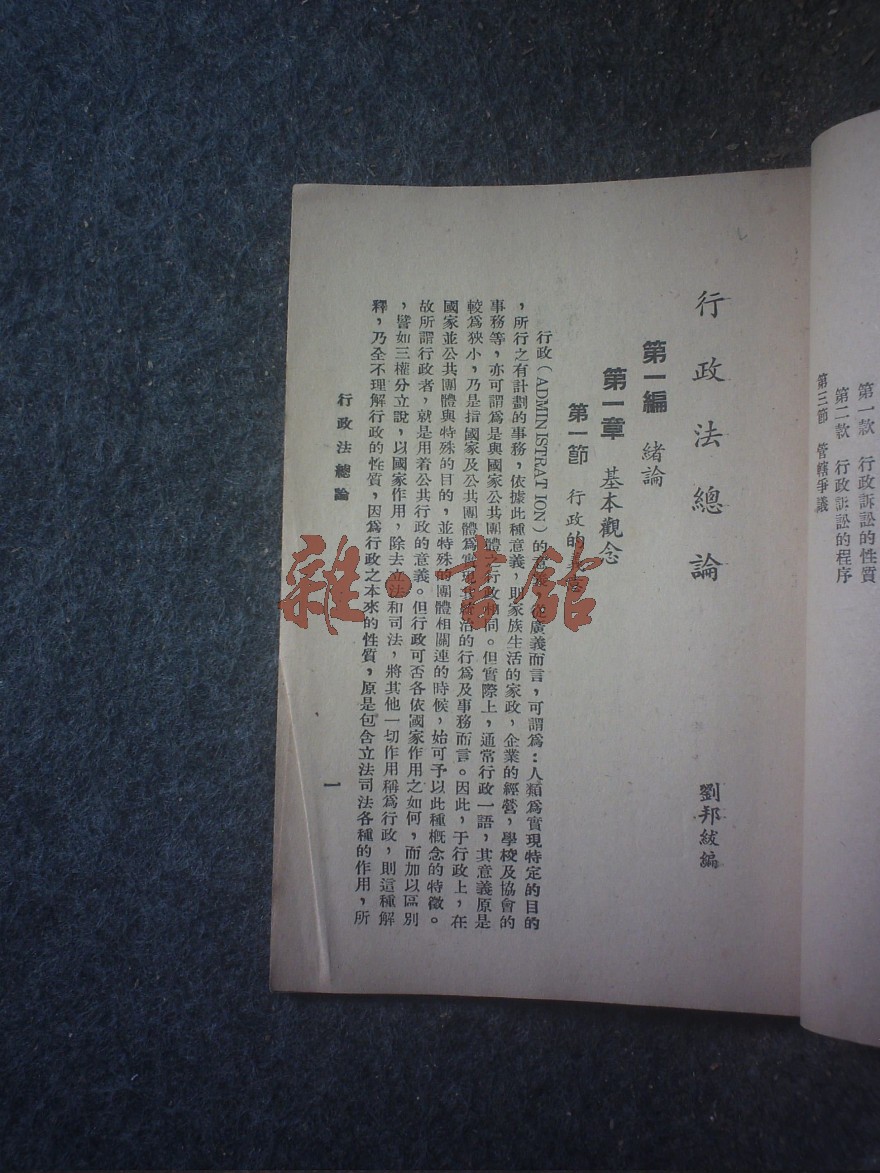 第一款　行政訴訟的性質
第二款　行政訴訟的程序
第三節　管轄爭議
行政法總論
劉邦紱編
第一編　緒論
第一章　基本觀念
第一節　行政的
行政（ADMINISTRAT ION）的意義廣義而言，可謂爲：人類爲實現特定的目的
，所行之有計劃的事務，依據此種意義，則家族生活的家政，企業的經營，學校及協會的
事務等，亦可謂爲是與國家公共團體之行政相同。但實際上，通常行政一語，其意義原是
較爲狹小，乃是指國家及公共團體爲實現其統治的行爲及事務而言。因此，于行政上，在
國家並公共團體與特殊的目的，並特殊的團體相關連的時候，始可予以此種概念的特徵。
故所謂行政者，就是用着公共行政的意義。但行政可否各依國家作用之如何，而加以區別
，譬如三權分立說，以國家作用，除去立法和司法，將其他一切作用稱爲行政，則這種解
釋，乃全不理解行政的性質，因爲行政之本來的性質，原是包含立法司法各種的作用，所
行政法總論
一
雜·書館